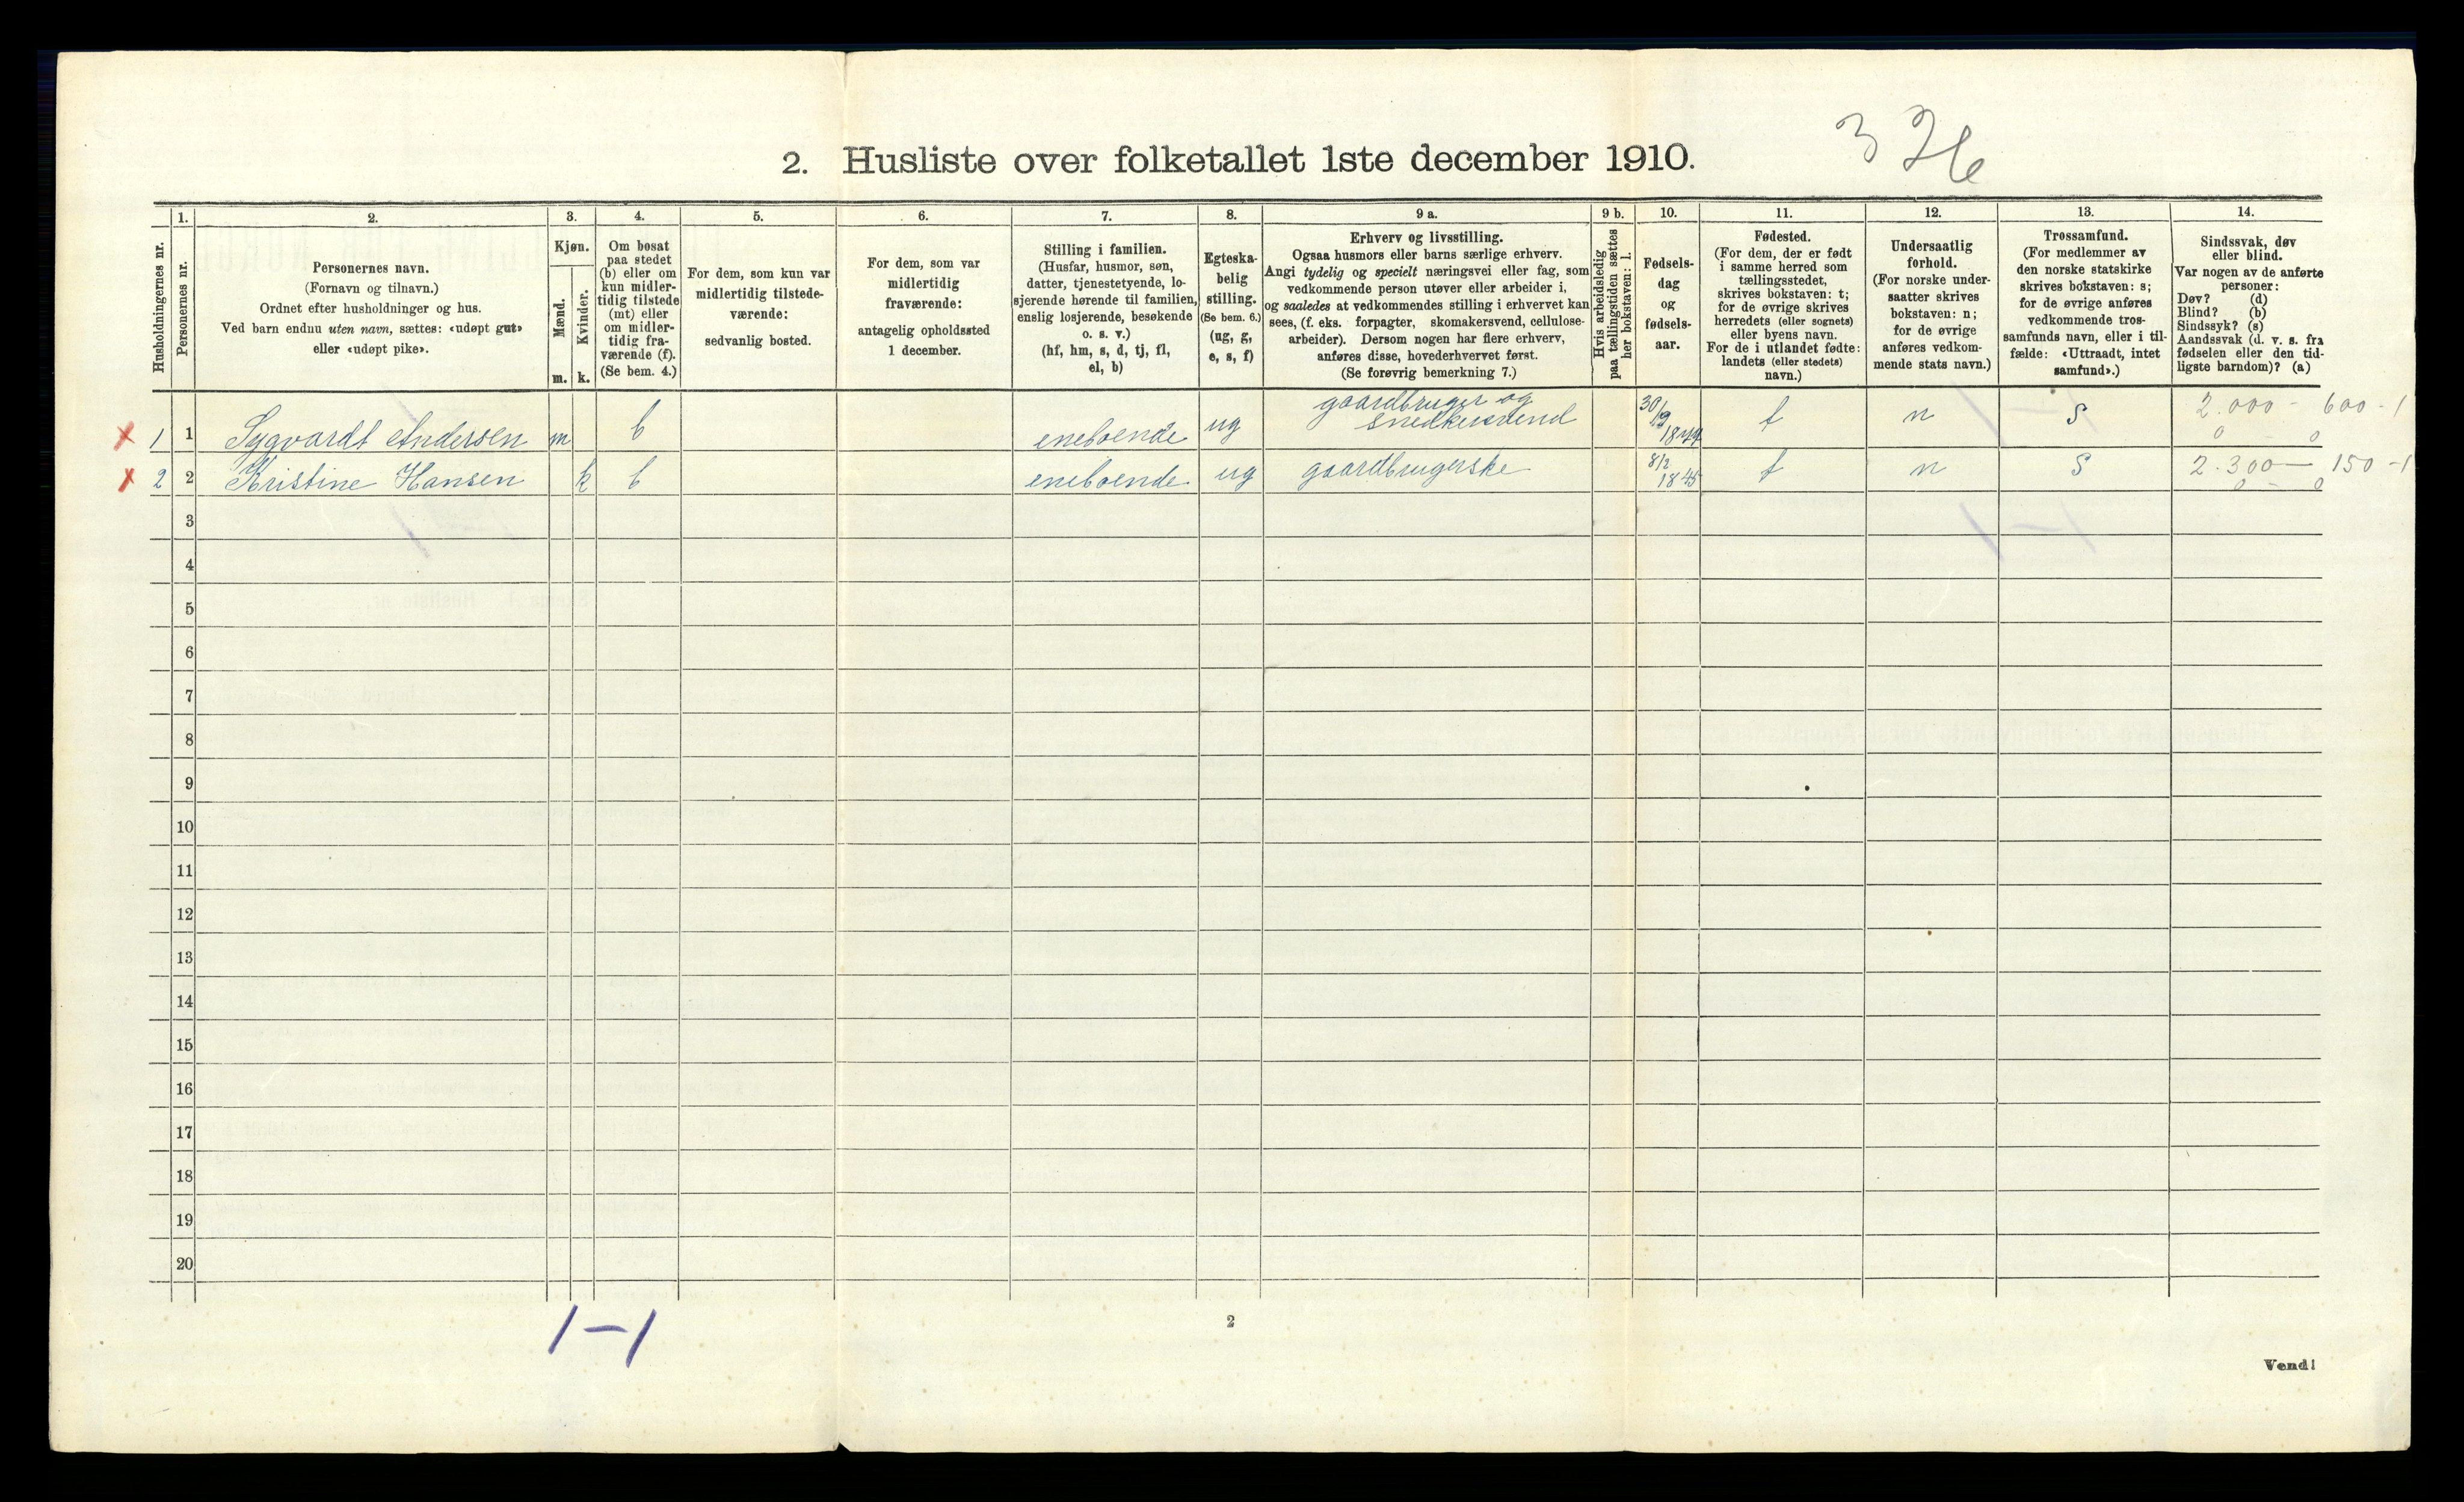 326
2. Husliste over folketallet 1ste december 1910.
Husholdningernes nr.
1.
Personernes nr.
2.
Personernes navn.
(Fornavn og tilnavn.)
Ordnet efter husholdninger og hus.
Ved barn endnu uten navn, sættes: «udøpt gut»
eller «udøpt pike».
3.
Kjøn.
Mænd.
Kvinder.
m. k.
4.
Om bosat
paa stedet
(b) eller om
kun midler-
tidig tilstede
(mt) eller
om midler-
tidig fra-
værende (f).
(Se bem. 4.)
5.
For dem, som kun var
midlertidig tilstede-
værende:
sedvanlig bosted.
6.
For dem, som var
midlertidig
fraværende:
antagelig opholdssted
1 december.
7.
Stilling i familien.
(Husfar, husmor, søn,
datter, tjenestetyende, lo-
sjerende hørende til familien,
enslig losjerende, besøkende
o. s. v.)
(hf, hm, s, d, tj, fl,
el, b)
8.
Egteska-
belig
stilling.
(Se bem. 6.)
(ug, g,
e, s, f)
9 a.
Erhverv og livsstilling.
Ogsaa husmors eller barns særlige erhverv.
Angi tydelig og specielt næringsvei eller fag, som
vedkommende person utøver eller arbeider i,
og saaledes at vedkommendes stilling i erhvervet kan
sees, (f. eks. forpagter, skomakersvend, cellulose-
arbeider). Dersom nogen har flere erhverv,
anføres disse, hovederhvervet først.
(Se forøvrig bemerkning 7.)
9 b.
Hvis arbeidsledig
paa tællingstiden sættes
her bokstaven: l.
10.
Fødsels-
dag
og
fødsels-
aar.
11.
Fødested.
(For dem, der er født
i samme herred som
tællingsstedet,
skrives bokstaven: t;
for de øvrige skrives
herredets (eller sognets)
eller byens navn.
For de i utlandet fødte:
landets (eller stedets)
navn.)
12.
Undersaatlig
forhold.
(For norske under-
saatter skrives
bokstaven: n;
for de øvrige
anføres vedkom-
mende stats navn.)
13.
Trossamfund.
(For medlemmer av
den norske statskirke
skrives bokstaven: s;
for de øvrige anføres
vedkommende tros-
samfunds navn, eller i til-
fælde: «Uttraadt, intet
samfund».)
14.
Sindssvak, døv
eller blind.
Var nogen av de anførte
personer:
Døv? (d)
Blind? (b)
Sindssyk? (s)
Aandssvak (d. v. s. fra
fødselen eller den tid-
ligste barndom)? (a)
x 1 1 Sygvardt Andersen m b eneboende ug gaardbruger og snedkersvend 30/9 1849 t n S 2.000 - 600 - 1
0 - 0
x 2 2 Kristine Hansen k b eneboende ug gaardbrugerske 8/2 1845 t n S 2.300 — 150 - 1
0 - 0
3
4
5
6
7
8
9
10
11
12
13
14
15
16
17
18
19
20
1-1
2
Vend!